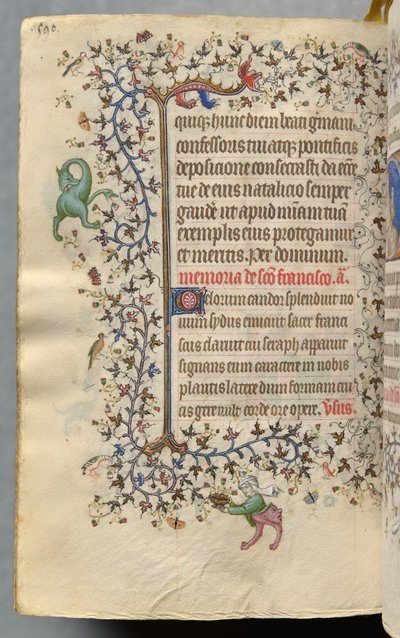 590.
quiqz hunc diem beati gmani
confessoris tui atqz pontificis
deposicione consecrasti da ecce
tue de eius natalicio semper
gaudé ut apud miam tuā
exemplis eius protegamur
et meritis. Per dominum.
memoria de scō francisco. ā
Celorum candor splenduit no
uum sydus emicuit sacer franci
scus claruit cui seraph apparuit
signans eum caractere in nobis
plantis latere dum formam cru
cis gerere uult corde ore opere. v̄sus.